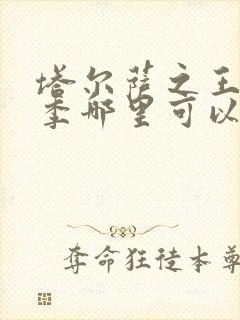 塔尔萨之王
季哪里可以
夺命狂徒本尊